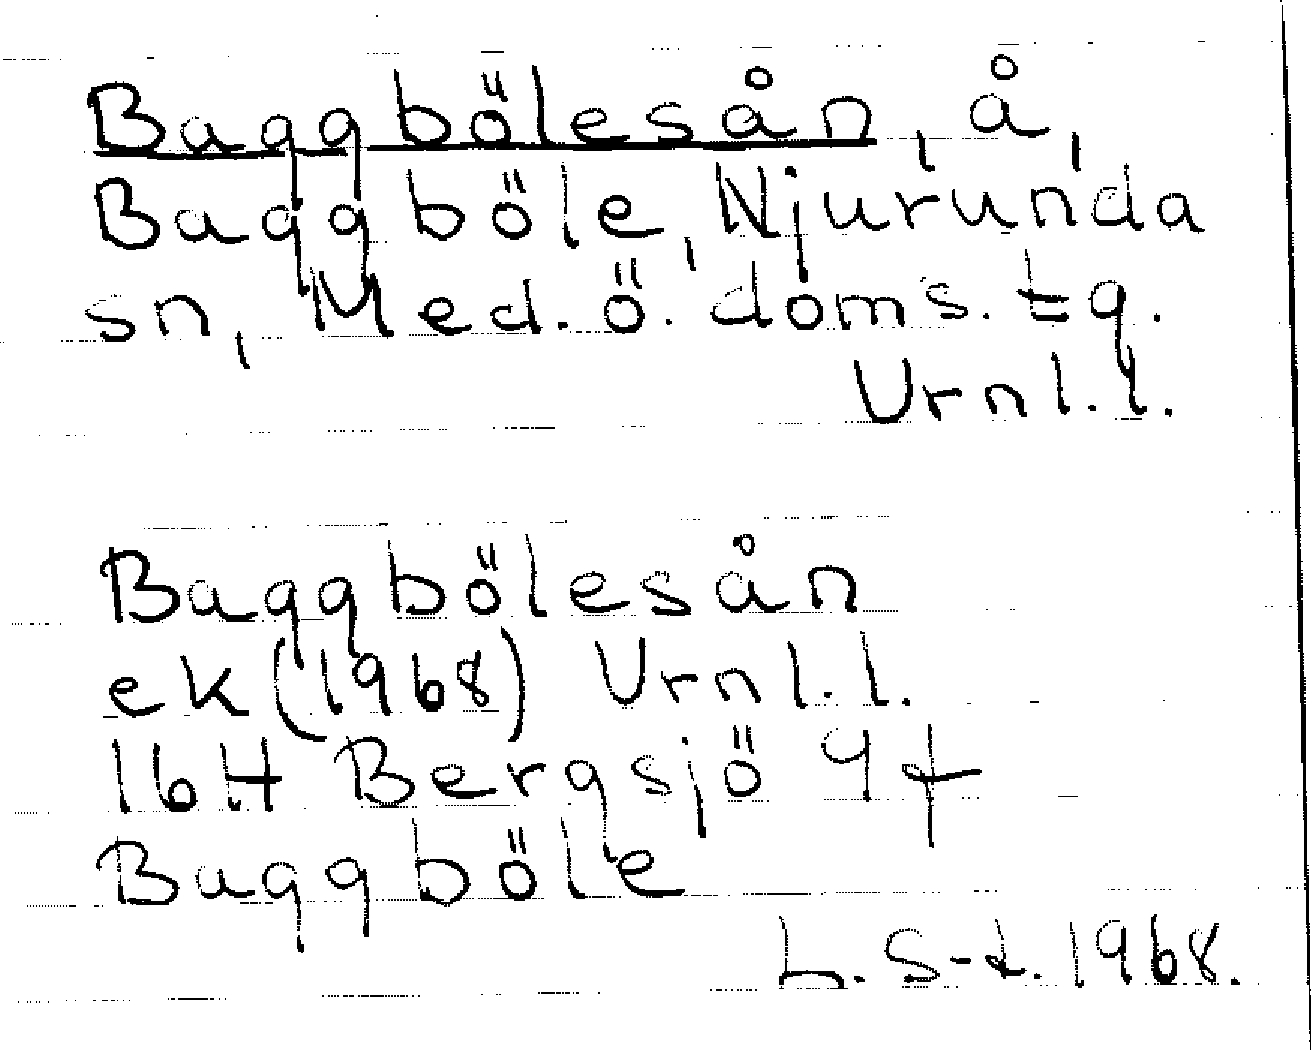 Baggbölesån, å,
Baggböle, Njurunda
sn, Med. ö. doms. tg.
Urnl. l.
Baggbölesån
ek (1968) Urnl. l.
16H Bergsjö 9f
Baggböle
L. S-t. 1968.